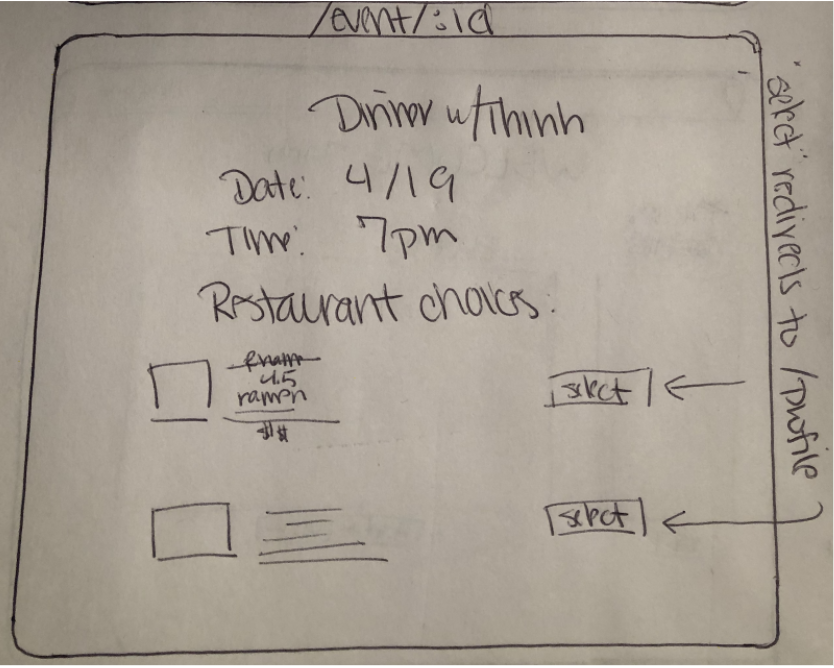 /event/:id
Dinner w/Thinh
Date: 4/19
Time: 7pm
Restaurant choices:
4.5
ramen
$$
select
select
"select" redirects to /profile